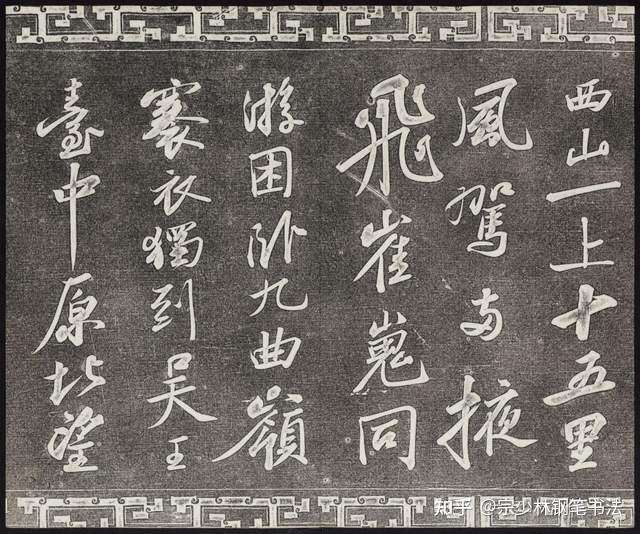 西山一上十五里
風駕两掖
飛崔嵬同
游困卧九曲嶺
褰衣獨到吴王
臺中原北望
知乎 @宗少林钢笔书法